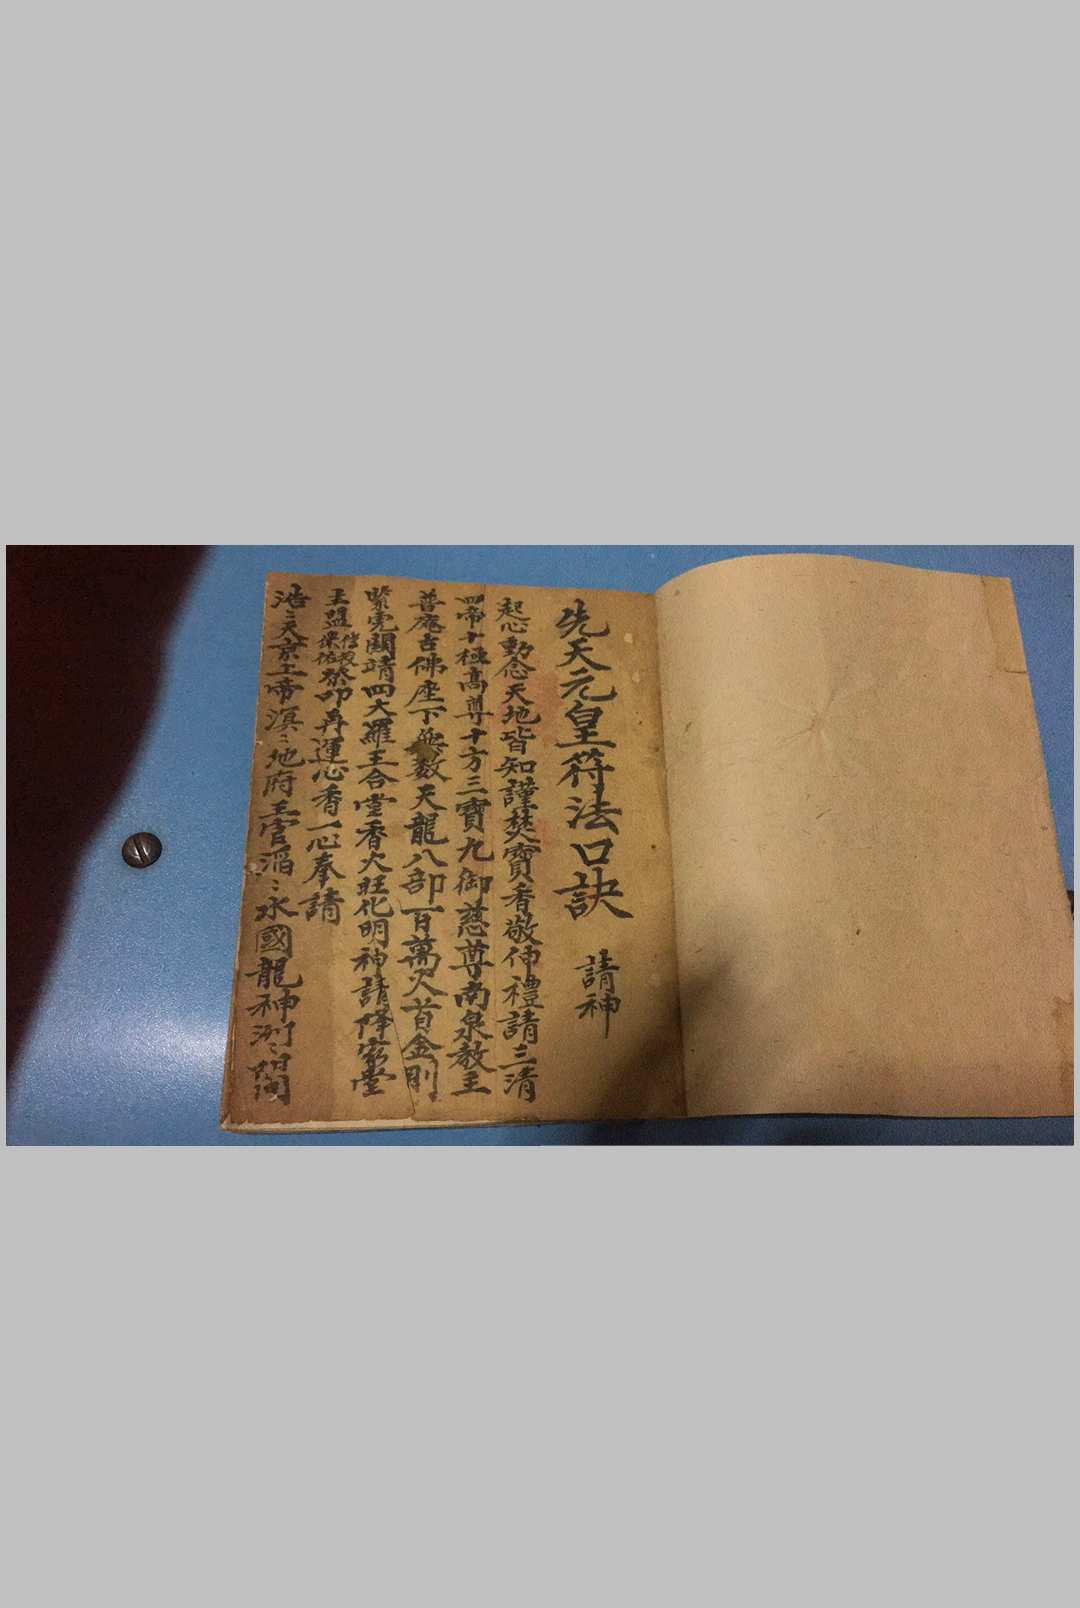 先天元皇符法口訣 請神
起心動念天地皆知謹焚寶香敬伸禮請三清
四帝十極高尊十方三寶九御慈尊南泉教主
普庵古佛座下無数天龍八部百萬火首金剛
関靖四大羅王合堂香火旺化明神請降家堂
王盟傳教祭卯再運心香一心奉請
浩〻天京玉帝溟〻地府王官滔〻水國龍神